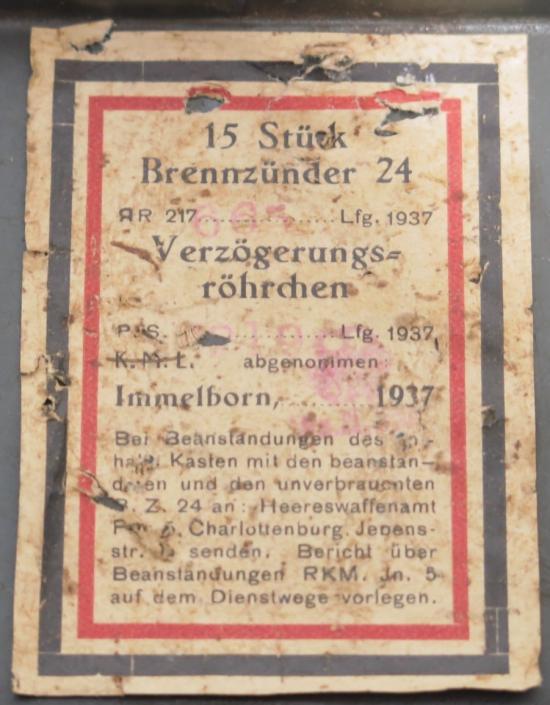 15 Stück
Brennzünder 24
AR 217 665 Lfg. 1937
Verzögerungs=
röhrchen
P.S. Lfg. 1937
K.M.L. abgenommen:
Immelborn, 1937
Bei Beanstandungen des
Kasten mit den beanstan-
deten und den unverbrauchten
B. Z. 24 an: Heereswaffenamt
Charlottenburg, Jebens-
str. senden. Bericht über
Beanstandungen RKM. Jn. 5
auf dem Dienstwege vorlegen.